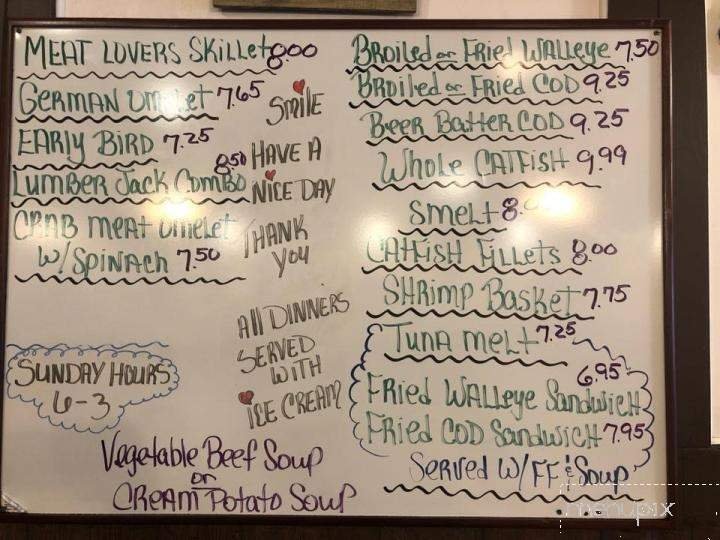 MEAT LOVERS SKILLET 8.00
GERMAN OMELET 7.65
EARLY BIRD 7.25
LUMBER JACK COMBO 8.50
CRAB MEAT OMELET
W/SPINACH 7.50
SMILE
HAVE A
NICE DAY
THANK
YOU
ALL DINNERS
SERVED
WITH
ICE CREAM
SUNDAY HOURS
6-3
Vegetable Beef Soup
or
CREAM Potato Soup
BROILED or FRIED WALLEYE 7.50
BROILED or FRIED COD 9.25
BEER BATTER COD 9.25
WHOLE CATFISH 9.99
SMELT 8.
CATFISH FILLETS 8.00
SHRIMP BASKET 7.75
TUNA MELT 7.25
6.95
FRIED WALLEYE SANDWICH
FRIED COD SANDWICH 7.95
SERVED W/FF & SOUP
menupix